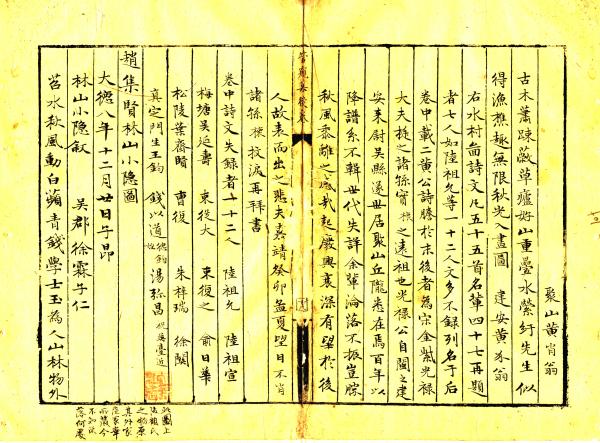 聚山黃肖翁
古木蕭踈蔽草廬好山重疊水縈紆先生似
得漁樵趣無限秋光入畫圖 建安黃 翁
右水村啚詩文凡五十五首名軰四十七再題
者七人如陸祖允等一十二人文多不錄列名于后
卷中載二黃公詩牓於末後者為宋金紫光祿
大夫挺之諸孫實 之遠祖也光祿公自閩之建
安来尉吳縣遂世居聚山丘隴悉在焉百年以
降譜系不輯世代失詳余軰淪落不振豈勝
秋風黍離之感哉起廢興衰深有望於後
人故表而出之悲夫嘉靖癸卯孟夏望日不肖
諸孫 抆淚再拜書
卷中詩文失録者一十二人 陸祖允 陸祖宣
梅塘吳延壽 束從大 束復之 俞日華
松陵葉齋賢 曹復 朱梓瑞 徐關
真定門生王鈞 錢以道 湯弥昌
趙集賢林山小隱圖
大德八年十二月廿日子昂
林山小隱叙 吳郡徐霖子仁
苕水秋風動白蘋青錢學士玉為人山林物外